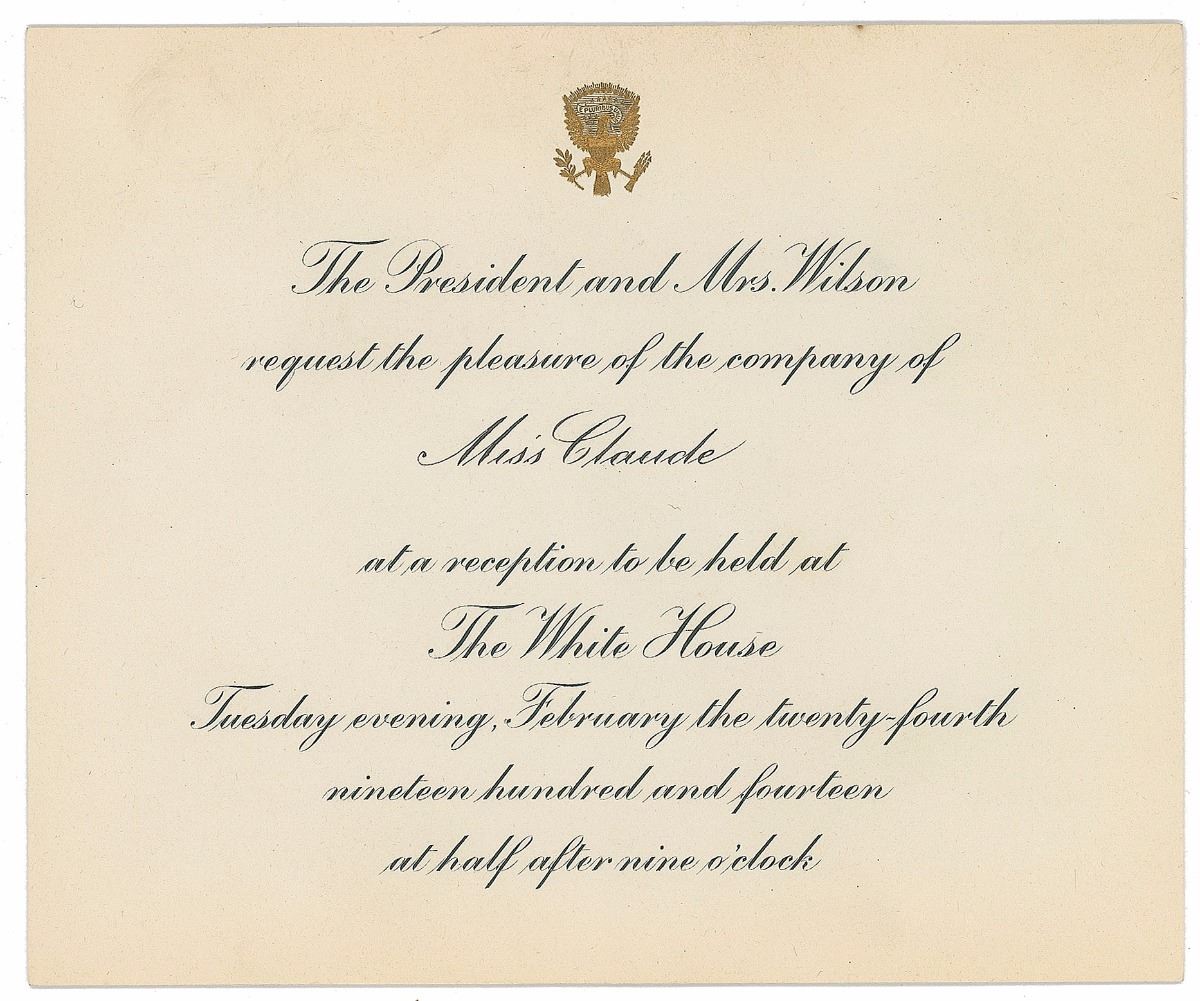 E PLURIBUS
The President and Mrs. Wilson
request the pleasure of the company of
Miss Claude
at a reception to be held at
The White House
Tuesday evening, February the twenty-fourth
nineteen hundred and fourteen
at half after nine o'clock